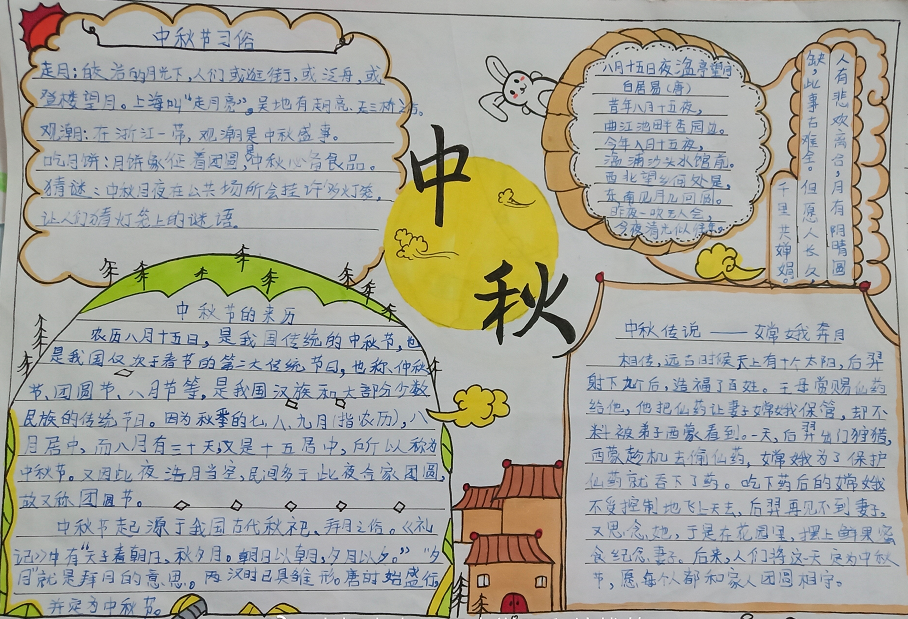 中秋节习俗
走月:皓洁的月光下,人们或逛街,或泛舟,或
登楼望月。上海叫“走月亮”,吴地有走月亮、走三桥
观潮:在浙江一带,观潮是中秋盛事。
吃月饼:月饼象征着团圆,是中秋必备食品。
猜谜:中秋月夜在公共场所会挂许多灯笼,
让人们猜灯笼上的谜语。
中
秋
八月十五日夜湓亭望月
白居易(唐)
昔年八月十五夜,
曲江池畔杏园边。
今年八月十五夜,
湓浦沙头水馆前。
西北望乡何处是,
东南见月几回圆。
昨夜一吹无人会,
今夜清光似往年。
人有悲欢离合,月有阴晴圆
缺,此事古难全。但愿人长久,
千里共婵娟。
中秋节的来历
农历八月十五日,是我国传统的中秋节,也
是我国仅次于春节的第二大传统节日,也称仲秋
节、团圆节、八月节等,是我国汉族和大部分少数
民族的传统节日。因为秋季的七、八、九月(指农历),八
月居中,而八月有三十天,又是十五居中,所以称为
中秋节。又因此夜浩月当空,民间多于此夜合家团圆,
故又称团圆节。
中秋节起源于我国古代秋祀、拜月之俗。《礼
记》中有“天子春朝日,秋夕月。朝日以朝,夕月以夕。”“夕
月”就是拜月的意思。两汉时已具雏形,唐时始盛行,
并定为中秋节。
中秋传说——嫦娥奔月
相传,远古时候天上有十个太阳,后羿
射下九个后,造福了百姓。王母赏赐仙药
给他,他把仙药让妻子嫦娥保管,却不
料被弟子西蒙看到。一天,后羿出门狩猎,
西蒙趁机去偷仙药,嫦娥为了保护
仙药就吞下了药。吃下药后的嫦娥
不受控制地飞上天去,后羿再见不到妻子,
又思念她,于是在花园里,摆上鲜果蜜
食纪念妻子。后来,人们将这一天定为中秋
节,愿每个人都和家人团圆相守。